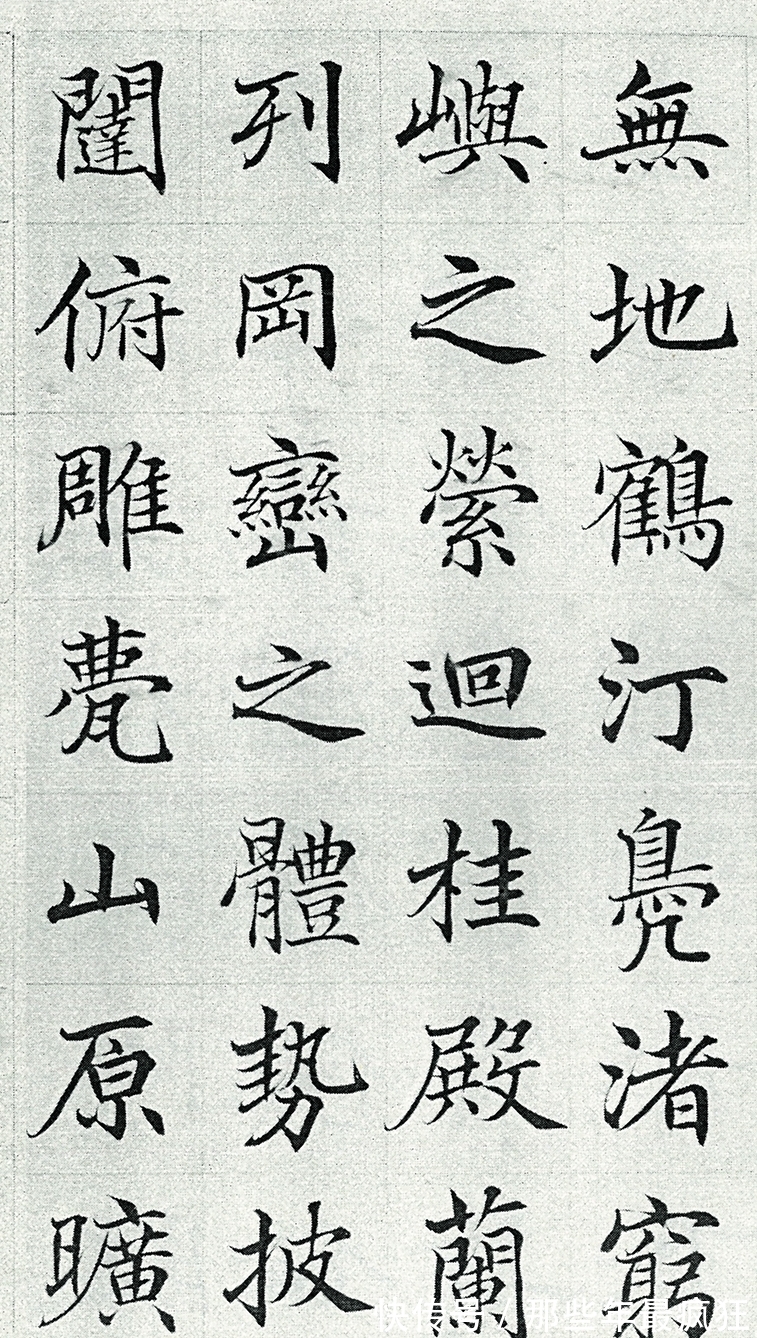 無地鶴汀鳧渚窮
嶼之縈迴桂殿蘭
列岡巒之體勢披
闥俯雕甍山原曠
快传号 / 那些年最疯狂